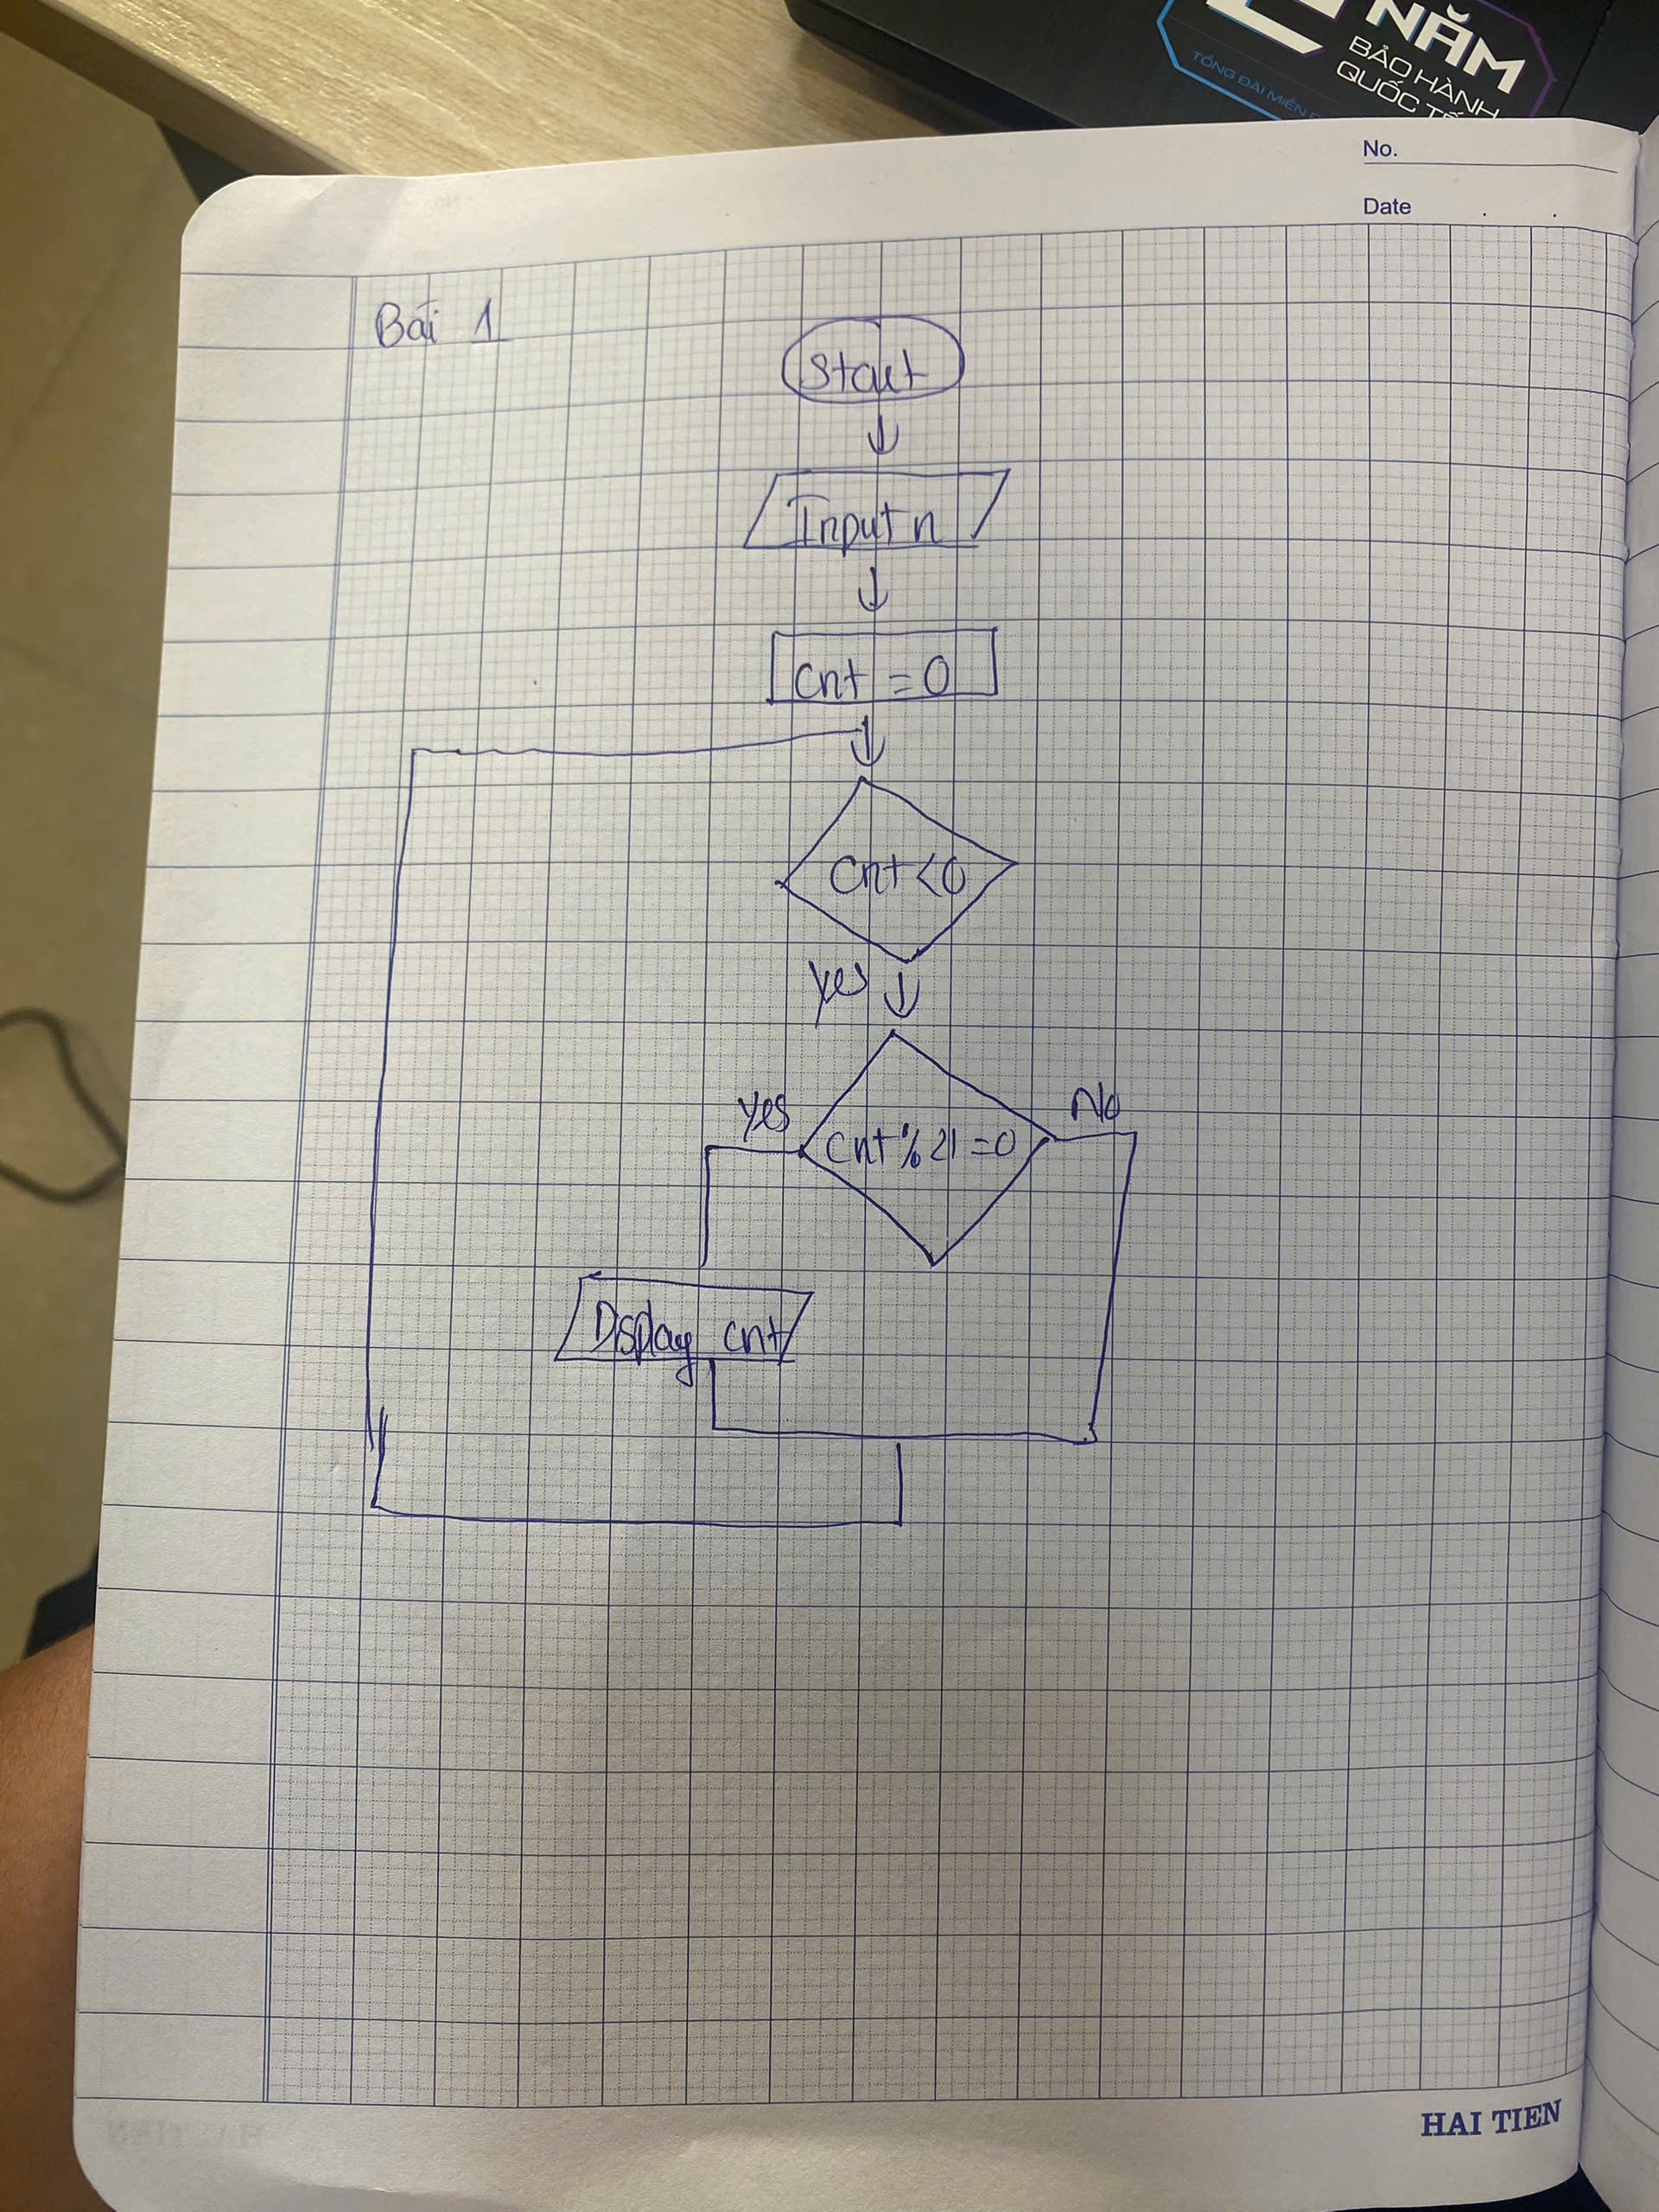 NĂM
BẢO HÀNH
QUỐC TẾ
TỔNG ĐÀI MIỄN
No.
Date
Bài 1
Start
Input n
Cnt = 0
Cnt < 0
yes
yes
No
Cnt % 21 = 0
Display cnt
HAI TIEN